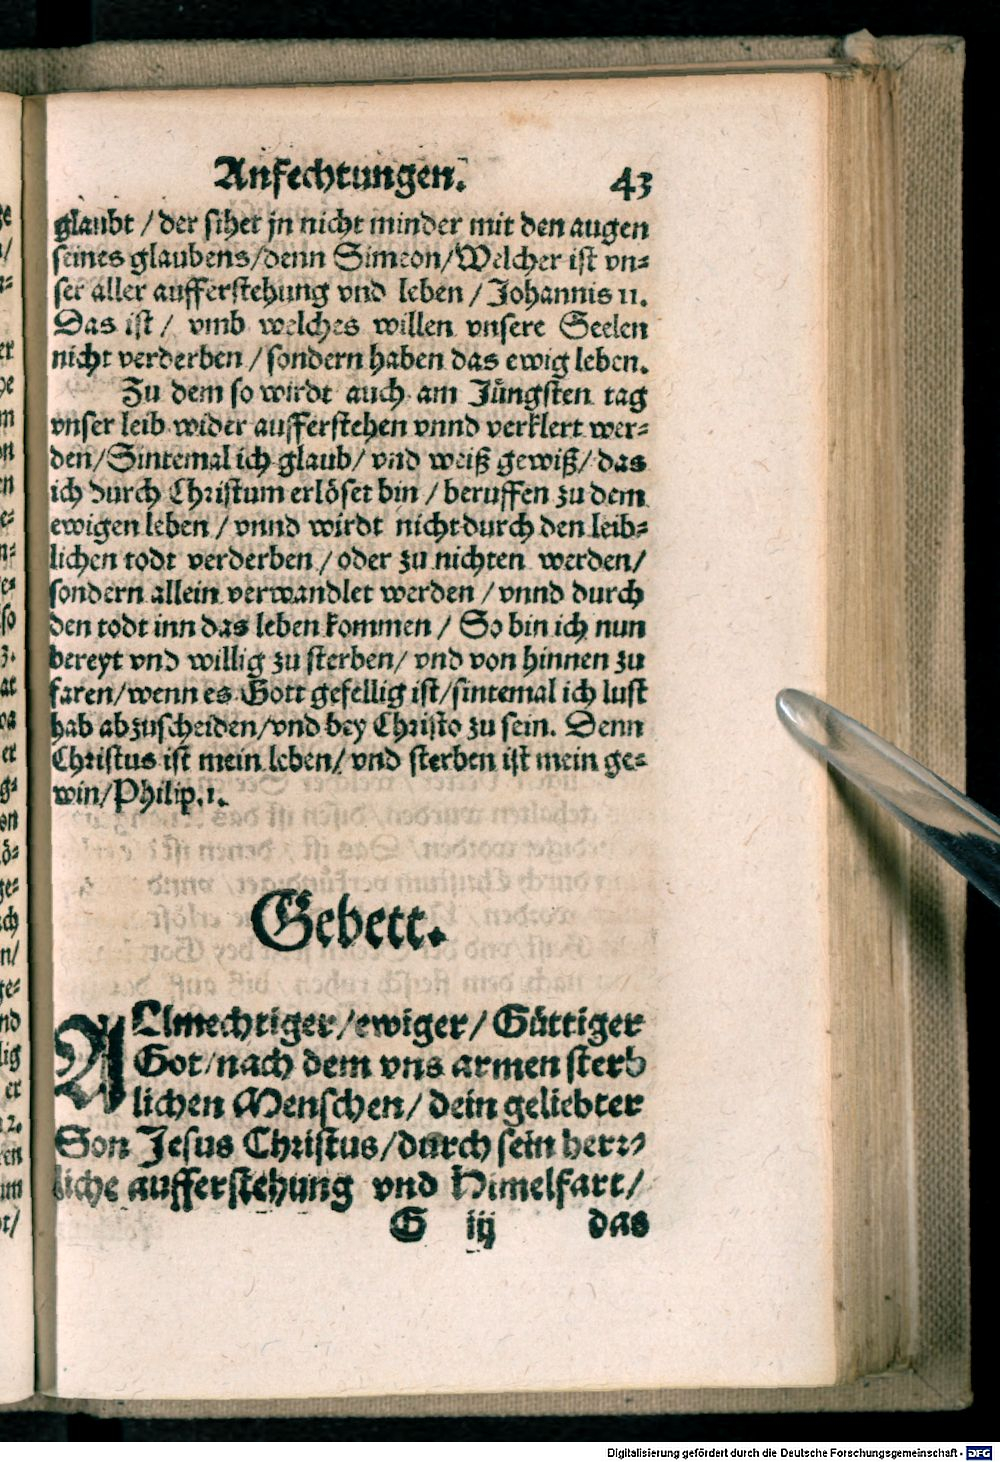 Anfechtungen. 43
glaubt / der sihet jn nicht minder mit den augen
seines glaubens/denn Simeon/Welcher ist vn-
ser aller aufferstehung vnd leben / Johannis 11.
Das ist / vmb welches willen vnsere Seelen
nicht verderben / sondern haben das ewig leben.
Zu dem so wirdt auch am Jüngsten tag
vnser leib wider aufferstehen vnnd verklert wer-
den/Sintemal ich glaub/ vnd weiß gewiß/ das
ich durch Christum erlöset bin / beruffen zu dem
ewigen leben / vnnd wirdt nicht durch den leib-
lichen todt verderben / oder zu nichten werden/
sondern allein verwandlet werden / vnnd durch
den todt inn das leben kommen / So bin ich nun
bereyt vnd willig zu sterben/ vnd von hinnen zu
faren/wenn es Gott gefellig ist/sintemal ich lust
hab abzuscheiden/vnd bey Christo zu sein. Denn
Christus ist mein leben/ vnd sterben ist mein ge-
win/Philip.1.
Gebett.
ALlmechtiger/ewiger/ Güttiger
Got/nach dem vns armen sterb
lichen Menschen/ dein geliebter
Son Jesus Christus/durch sein herr-
liche aufferstehung vnd Himelfart/
G iij das
Digitalisierung gefördert durch die Deutsche Forschungsgemeinschaft - DFG